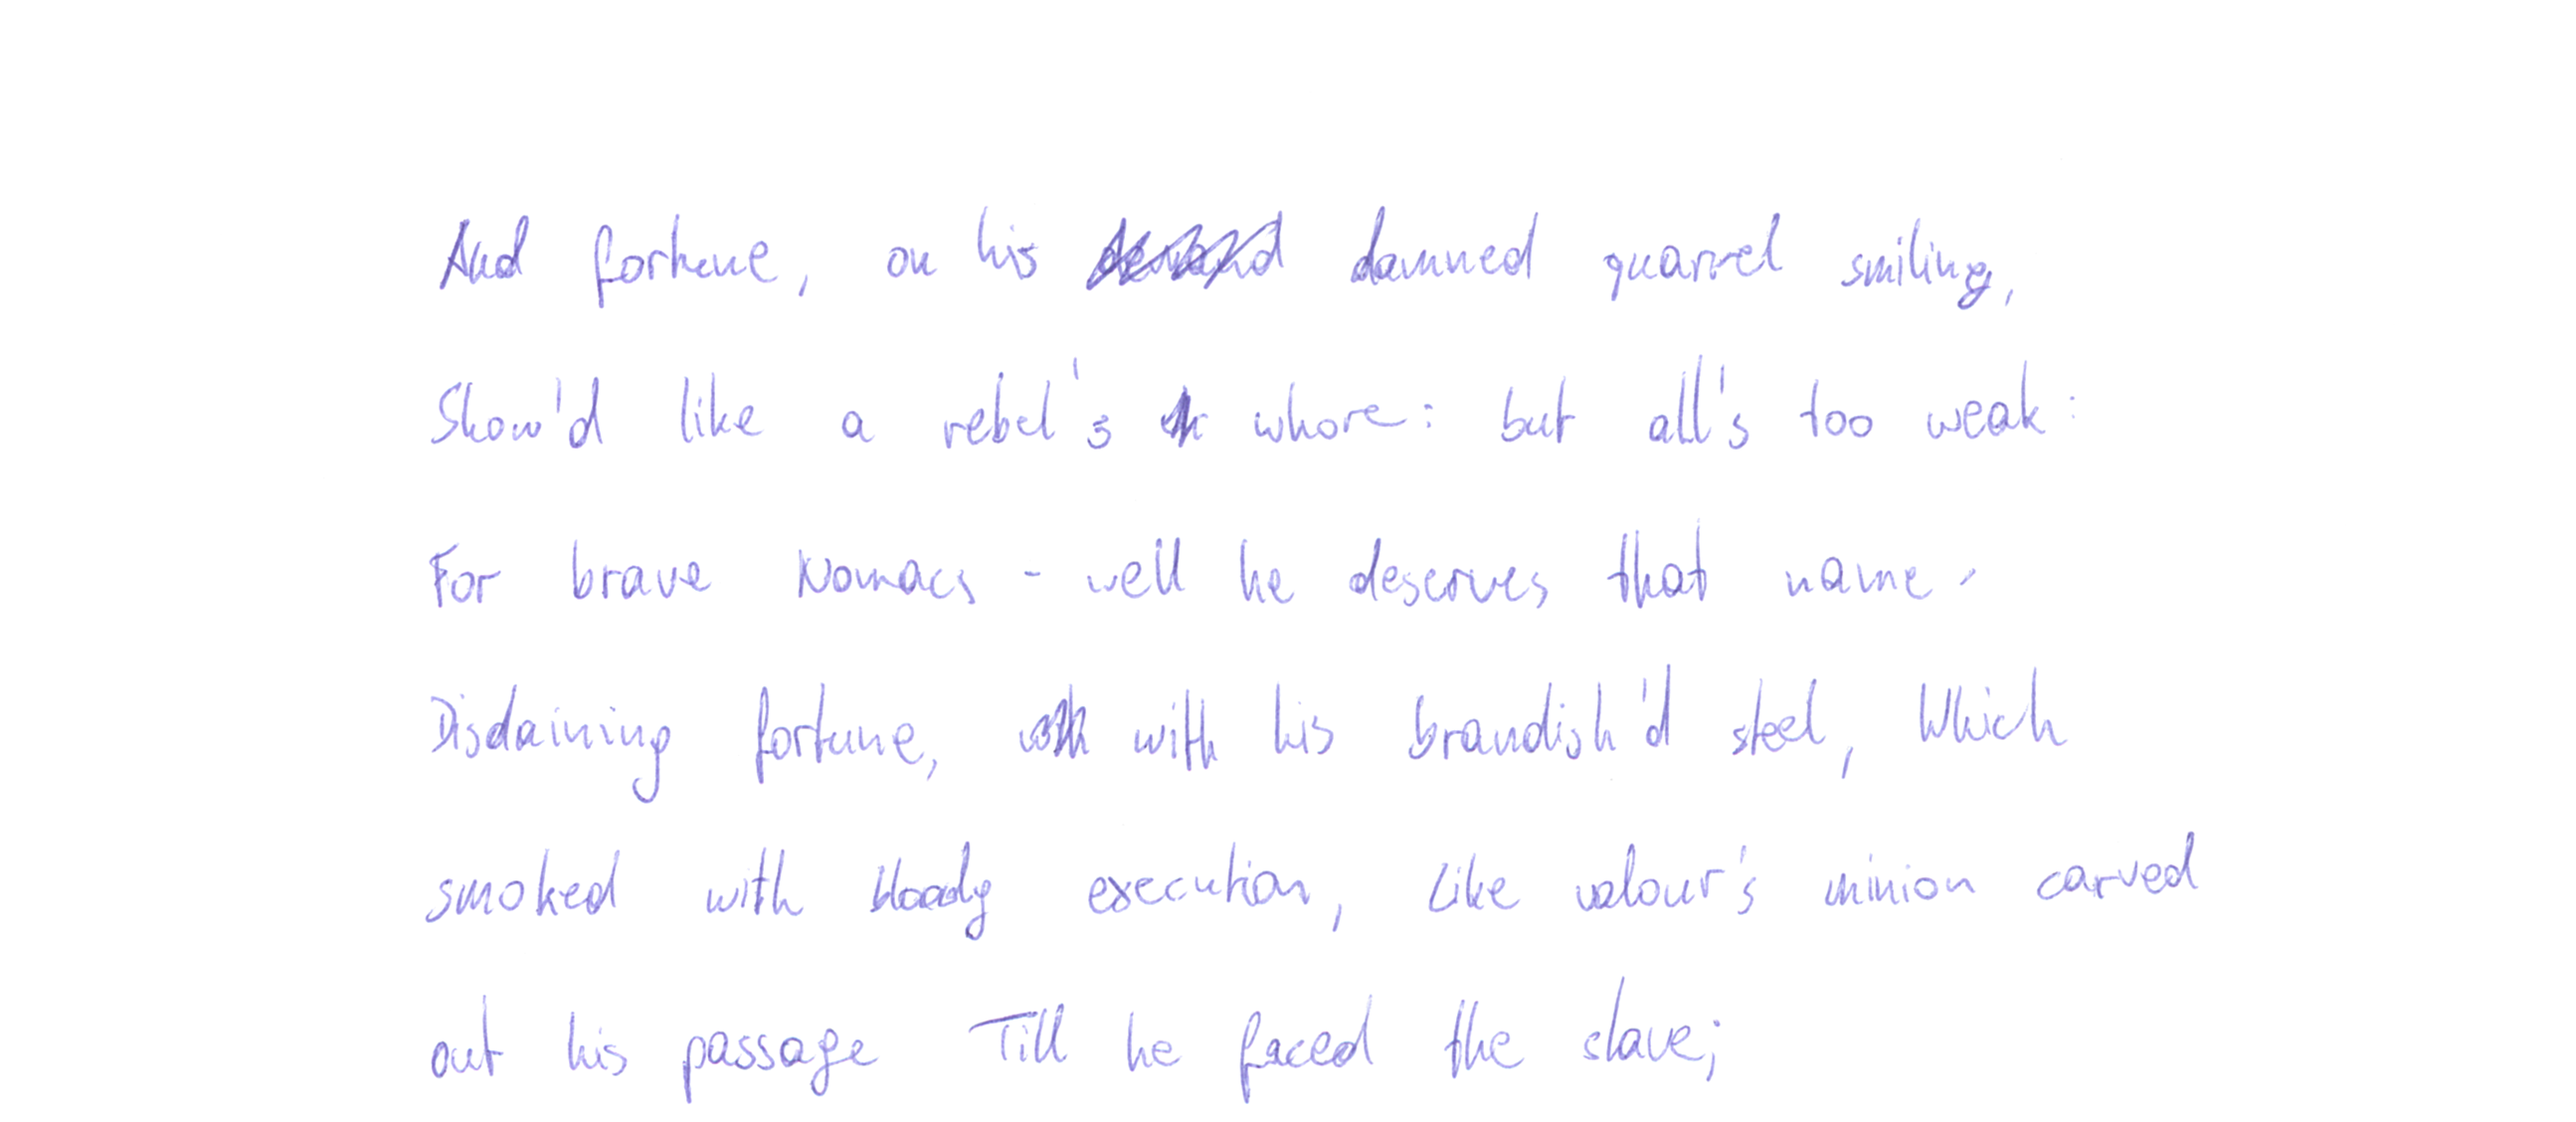 And fortune, on his damned quarrel smiling,
Show'd like a rebel's whore: but all's too weak:
For brave Nomacs - well he deserves that name -
Disdaining fortune, with his brandish'd steel, Which
smoked with bloody execution, Like valour's minion carved
out his passage Till he faced the slave;